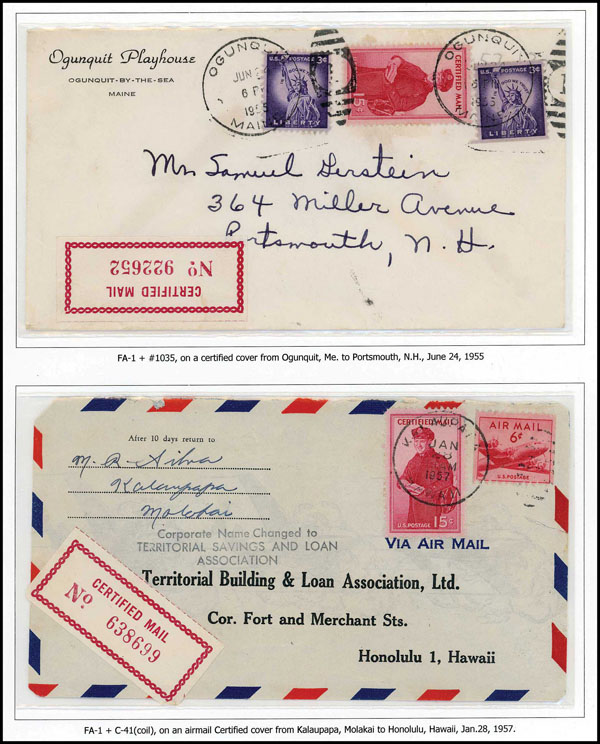 Ogunquit Playhouse
OGUNQUIT-BY-THE-SEA
MAINE
OGUNQUIT
JUN
6 P
1955
MAINE
U.S. POSTAGE 3¢
LIBERTY
CERTIFIED MAIL
15¢
OGUNQUIT
1955
U.S. POSTAGE 3¢
LIBERTY
Mr Samuel Gerstein
364 Miller Avenue
Portsmouth, N. H.
CERTIFIED MAIL
No 922652
FA-1 + #1035, on a certified cover from Ogunquit, Me. to Portsmouth, N.H., June 24, 1955
After 10 days return to
M. R. Silva
Kalaupapa
Molokai
Corporate Name Changed to
TERRITORIAL SAVINGS AND LOAN
ASSOCIATION
CERTIFIED MAIL
JAN
1957
U.S. POSTAGE 15¢
AIR MAIL
6¢
U.S. POSTAGE
VIA AIR MAIL
CERTIFIED MAIL
No 638699
Territorial Building & Loan Association, Ltd.
Cor. Fort and Merchant Sts.
Honolulu 1, Hawaii
FA-1 + C-41(coil), on an airmail Certified cover from Kalaupapa, Molakai to Honolulu, Hawaii, Jan.28, 1957.